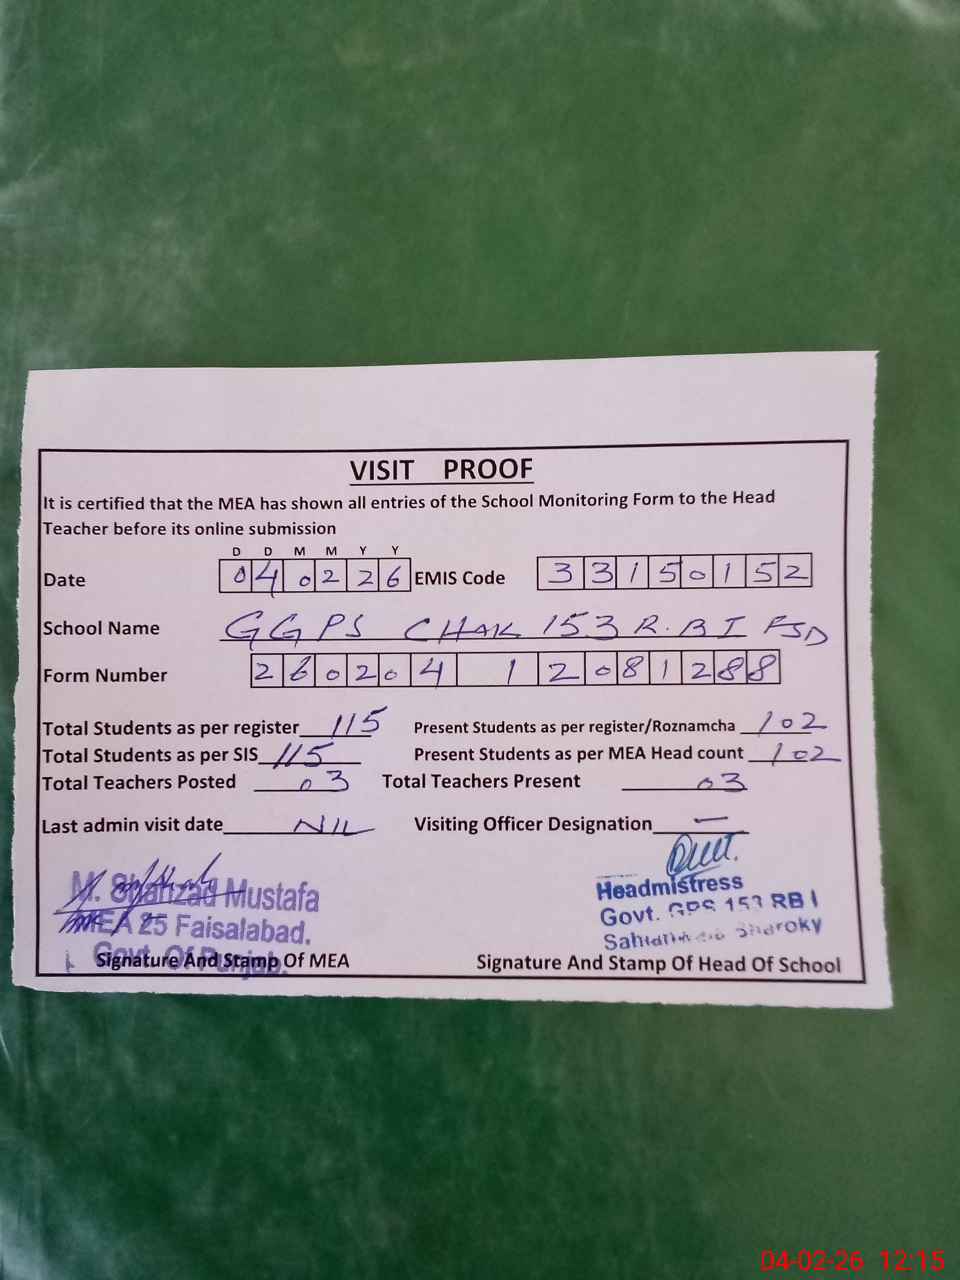 VISIT PROOF
It is certified that the MEA has shown all entries of the School Monitoring Form to the Head
Teacher before its online submission
D D M M Y Y
Date 04 02 26 EMIS Code 33150152
School Name GGPS CHAK 153 R.B I FSD
Form Number 260204 12081288
Total Students as per register 115 Present Students as per register/Roznamcha 102
Total Students as per SIS 115 Present Students as per MEA Head count 102
Total Teachers Posted 03 Total Teachers Present 03
Last admin visit date NIL Visiting Officer Designation —
M. Shahzad Mustafa
MEA 25 Faisalabad.
Govt. Of Punjab.
Headmistress
Govt. GPS 153 RB I
Sharoky
Signature And Stamp Of MEA Signature And Stamp Of Head Of School
04-02-26 12:15